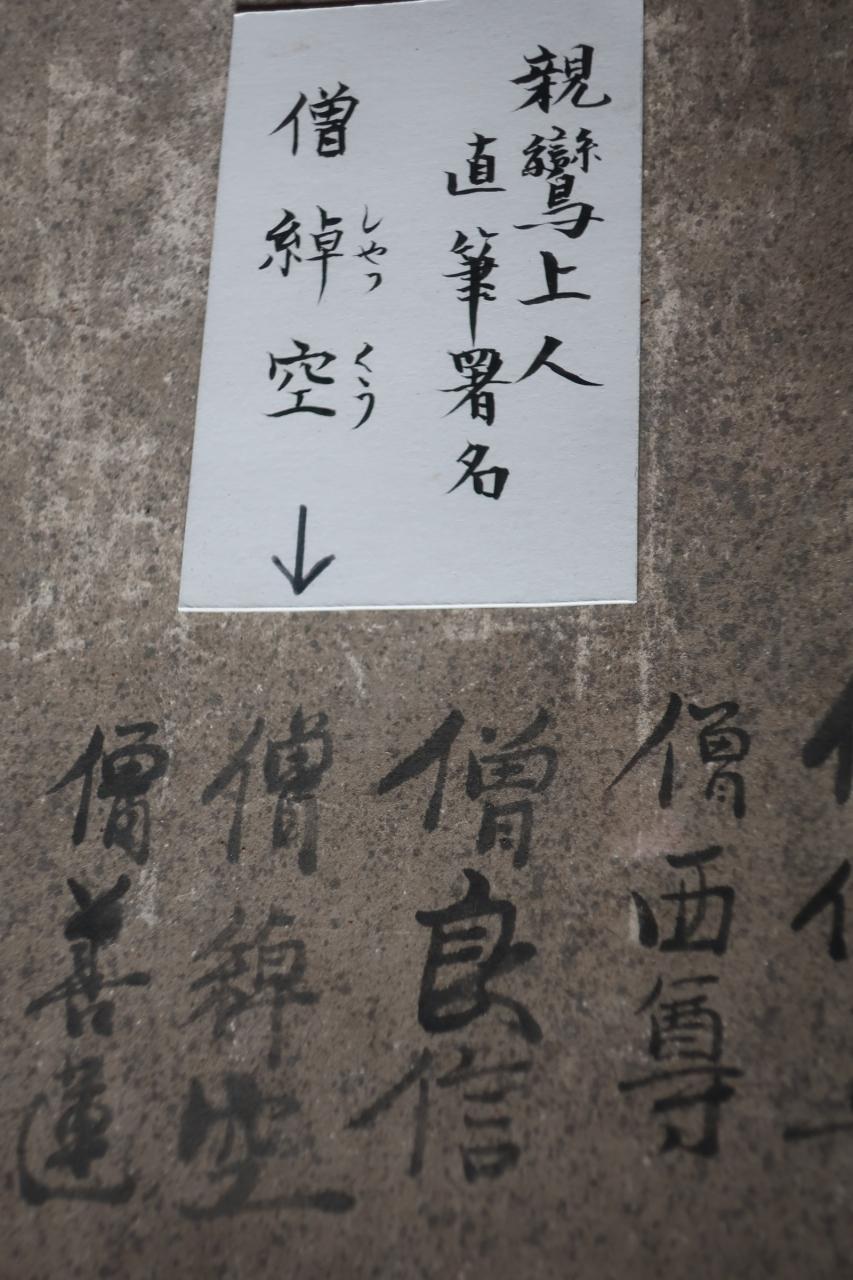 親鸞上人
直筆署名
僧綽空
しやっくう
僧西尊
僧良信
僧綽空
僧善蓮